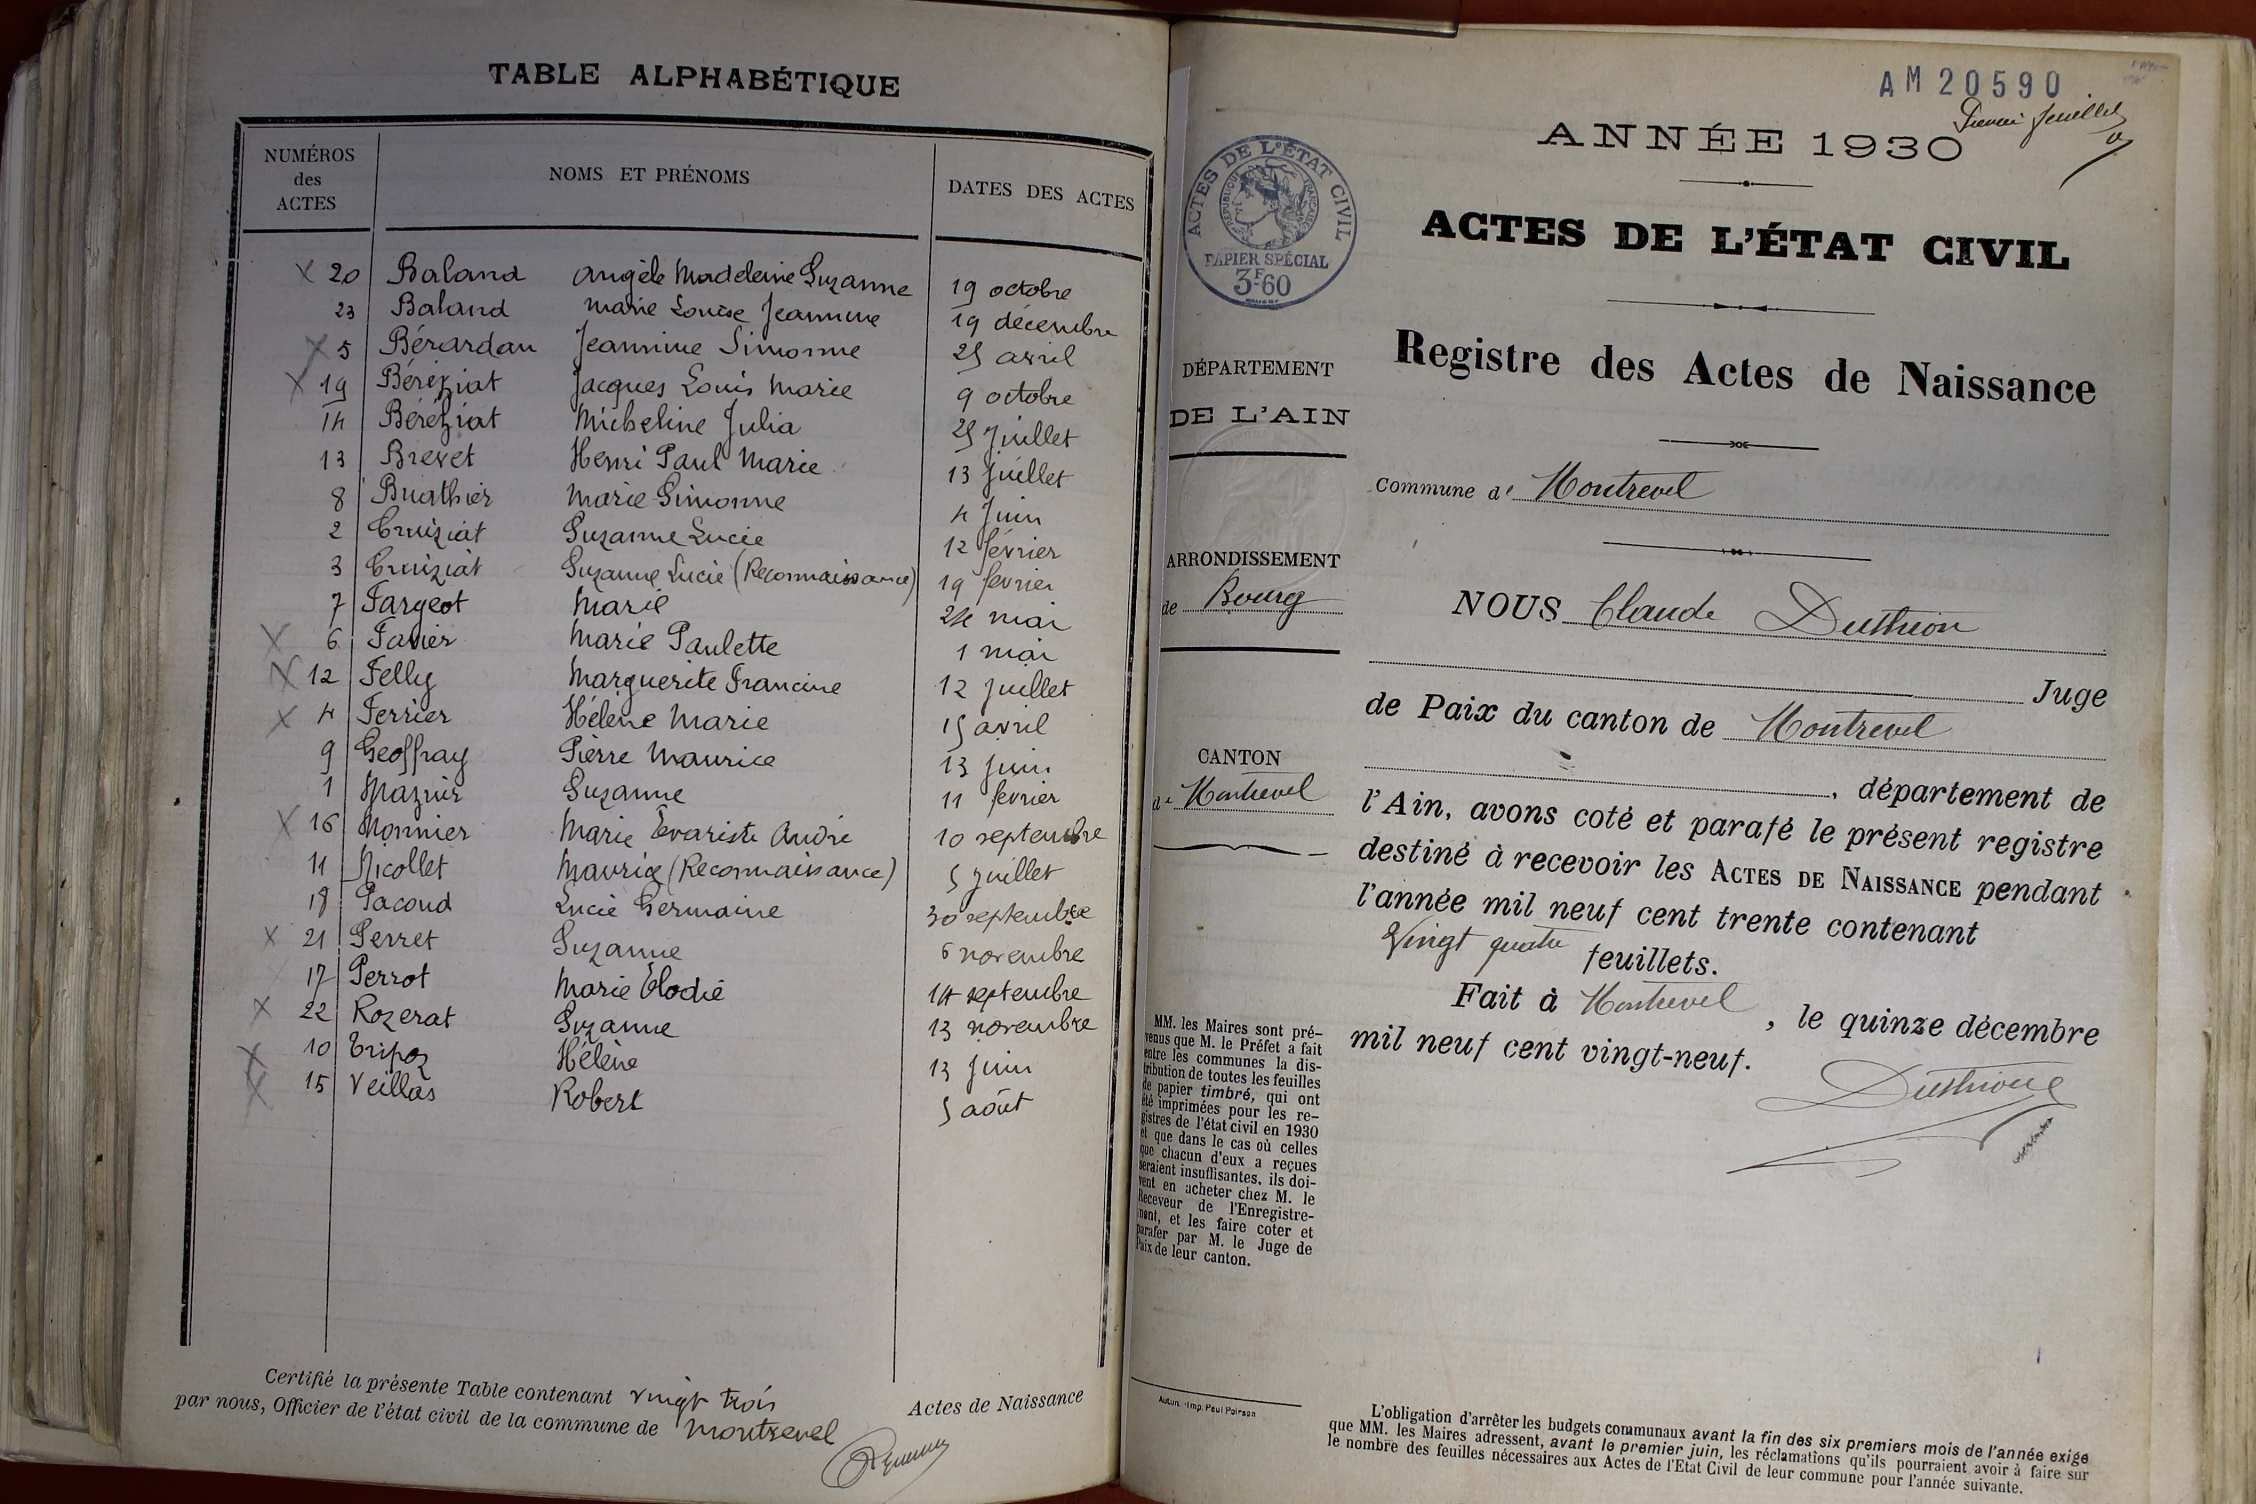 TABLE ALPHABÉTIQUE
NUMÉROS des ACTES NOMS ET PRÉNOMS DATES DES ACTES
X 20 Baland Angèle Madeleine Suzanne 19 octobre
23 Baland Marie Louise Jeannine 19 décembre
X 5 Bérardan Jeannine Simonne 25 avril
X 19 Béréziat Jacques Louis Marie 9 octobre
14 Béréziat Micheline Julia 25 Juillet
13 Brevet Henri Paul Marie 13 Juillet
8 Buathier Marie Simonne 4 Juin
2 Cruiziat Suzanne Lucie 12 février
3 Cruiziat Suzanne Lucie (Reconnaissance) 19 fevrier
7 Fargeot Marie 24 mai
X 6 Favier Marie Paulette 1 mai
X 12 Felly Marguerite Francine 12 juillet
X 4 Ferrier Hélène Marie 15 avril
9 Geoffray Pierre Maurice 13 juin
1 Mazuir Suzanne 11 fevrier
X 16 Monnier Marie Evariste André 10 septembre
11 Nicollet Maurice (Reconnaissance) 5 juillet
18 Pacoud Lucie Germaine 30 septembre
X 21 Perret Suzanne 6 novembre
17 Perrot Marie Elodie 14 septembre
X 22 Rozerat Suzanne 13 novembre
X 10 Tripoz Hélène 13 juin
X 15 Veillas Robert 5 août
Certifié la présente Table contenant vingt trois Actes de Naissance
par nous, Officier de l'état civil de la commune de Montrevel
AM 20590
Premier feuillet
ANNÉE 1930
ACTES DE L'ÉTAT CIVIL
RÉPUBLIQUE FRANÇAISE
PAPIER SPÉCIAL
3F60
ACTES DE L'ÉTAT CIVIL
Registre des Actes de Naissance
DÉPARTEMENT
DE L'AIN
ARRONDISSEMENT
de Bourg
CANTON
de Montrevel
MM. les Maires sont pré-
venus que M. le Préfet a fait
entre les communes la dis-
tribution de toutes les feuilles
de papier timbré, qui ont
été imprimées pour les re-
gistres de l'état civil en 1930
et que dans le cas où celles
que chacun d'eux a reçues
seraient insuffisantes, ils doi-
vent en acheter chez M. le
Receveur de l'Enregistre-
ment, et les faire coter et
parafer par M. le Juge de
Paix de leur canton.
Autun. - Imp. Paul Poirson
Commune de Montrevel
NOUS Claude Duthion
Juge
de Paix du canton de Montrevel
, département de
l'Ain, avons coté et parafé le présent registre
destiné à recevoir les ACTES DE NAISSANCE pendant
l'année mil neuf cent trente contenant
Vingt quatre feuillets.
Fait à Montrevel, le quinze décembre
mil neuf cent vingt-neuf.
L'obligation d'arrêter les budgets communaux avant la fin des six premiers mois de l'année exige
que MM. les Maires adressent, avant le premier juin, les réclamations qu'ils pourraient avoir à faire sur
le nombre des feuilles nécessaires aux Actes de l'Etat Civil de leur commune pour l'année suivante.